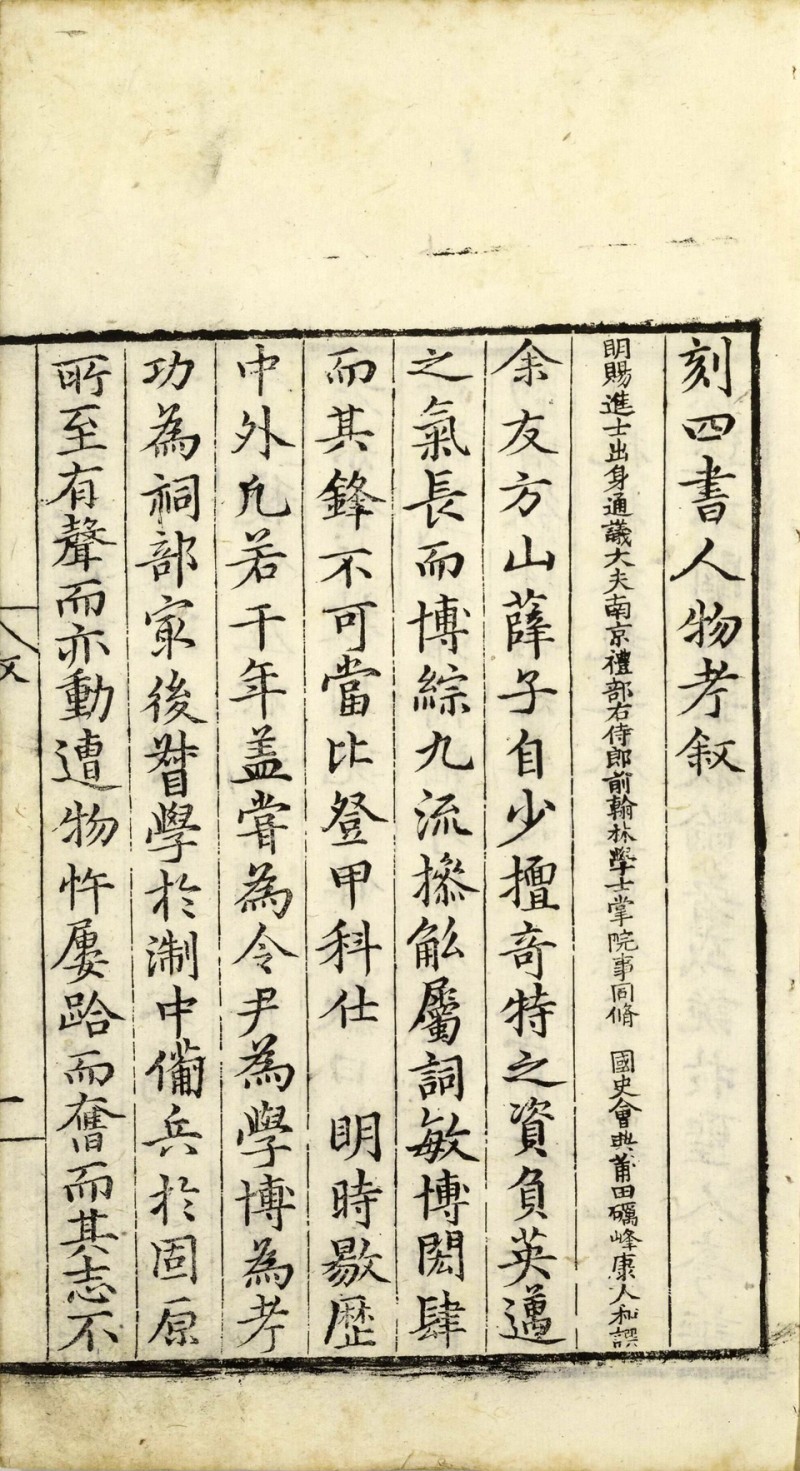 刻四書人物考叙
明賜進士出身通議大夫南京禮部右侍郎前翰林學士掌院事同脩　國史會典莆田礪峰康大和譔
余友方山薛子自少擅奇特之資負英邁
之氣長而博綜九流摻觚屬詞敏博閎肆
而其鋒不可當比登甲科仕　明時敭歷
中外凡若干年盖嘗為令尹為學博為考
功為祠部家後督學於淛中備兵於固原
所至有聲而亦動遭物忤屢跲而奮而其志不